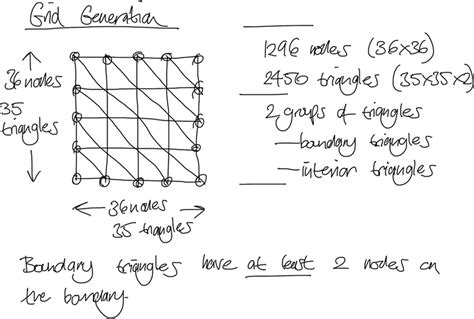 Grid Generation
36 nodes
35
triangles
36 nodes
35 triangles
1296 nodes (36x36)
2450 triangles (35x35x2)
2 groups of triangles
—boundary triangles
—interior triangles
Boundary triangles have at least 2 nodes on
the boundary.